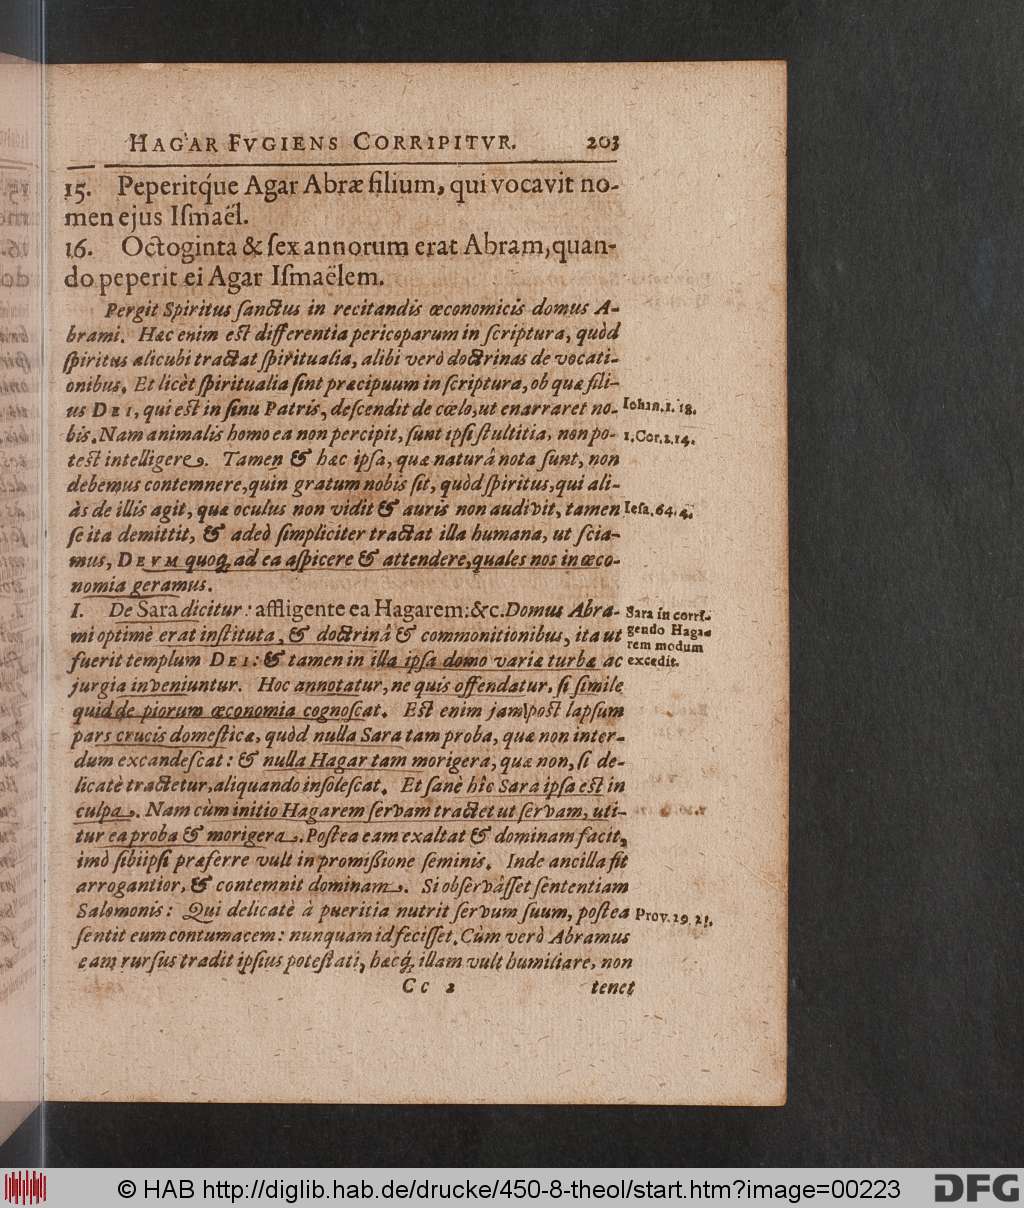 HAGAR FVGIENS CORRIPITVR. 203
15. Peperitq́ue Agar Abræ filium, qui vocavit no-
men ejus Iſmaël.
16. Octoginta & ſex annorum erat Abram, quan-
do peperit ei Agar Iſmaëlem.
Pergit Spiritus ſanctus in recitandis œconomicis domus A-
brami. Hæc enim eſt differentia pericoparum in ſcriptura, quòd
ſpiritus alicubi tractat ſpiritualia, alibi verò doctrinas de vocati-
onibus. Et licèt ſpiritualia ſint præcipuum in ſcriptura, ob quæ fili-
us DEI, qui eſt in ſinu Patris, deſcendit de cœlo, ut enarraret no-
Iohan. 1. 18.
bis. Nam animalis homo ea non percipit, ſunt ipſi ſtultitia, non po-
1. Cor. 2. 14.
teſt intelligere. Tamen & hæc ipſa, quæ naturâ nota ſunt, non
debemus contemnere, quin gratum nobis ſit, quòd ſpiritus, qui ali-
às de illis agit, quæ oculus non vidit & auris non audivit, tamen
Ieſa. 64. 4.
ſe ita demittit, & adeò ſimpliciter tractat illa humana, ut ſcia-
mus, DEVM quoq; ad ea aſpicere & attendere, quales nos in œco-
nomia geramus.
I. De Sara dicitur: affligente ea Hagarem: &c. Domus Abra-
mi optimè erat inſtituta, & doctrinâ & commonitionibus, ita ut
fuerit templum DEI: & tamen in illa ipſa domo variæ turbæ ac
Sara in corri-
gendo Haga-
rem modum
excedit.
jurgia inveniuntur. Hoc annotatur, ne quis offendatur, ſi ſimile
quid de piorum œconomia cognoſcat. Eſt enim jam poſt lapſum
pars crucis domeſticæ, quòd nulla Sara tam proba, quæ non inter-
dum excandeſcat: & nulla Hagar tam morigera, quæ non, ſi de-
licatè tractetur, aliquando inſoleſcat. Et ſanè hîc Sara ipſa eſt in
culpa. Nam cùm initio Hagarem ſervam tractet ut ſervam, uti-
tur ea proba & morigera. Poſtea eam exaltat & dominam facit,
imò ſibiipſi præferre vult in promiſſione ſeminis. Inde ancilla fit
arrogantior, & contemnit dominam. Si obſervâſſet ſententiam
Salomonis: Qui delicatè à pueritia nutrit ſervum ſuum, poſtea
Prov. 29. 21.
ſentit eum contumacem: nunquam id feciſſet. Cùm verò Abramus
eam rurſus tradit ipſius poteſtati, hæcq́; illam vult humiliare, non
Cc 2 tenet
© HAB http://diglib.hab.de/drucke/450-8-theol/start.htm?image=00223
DFG